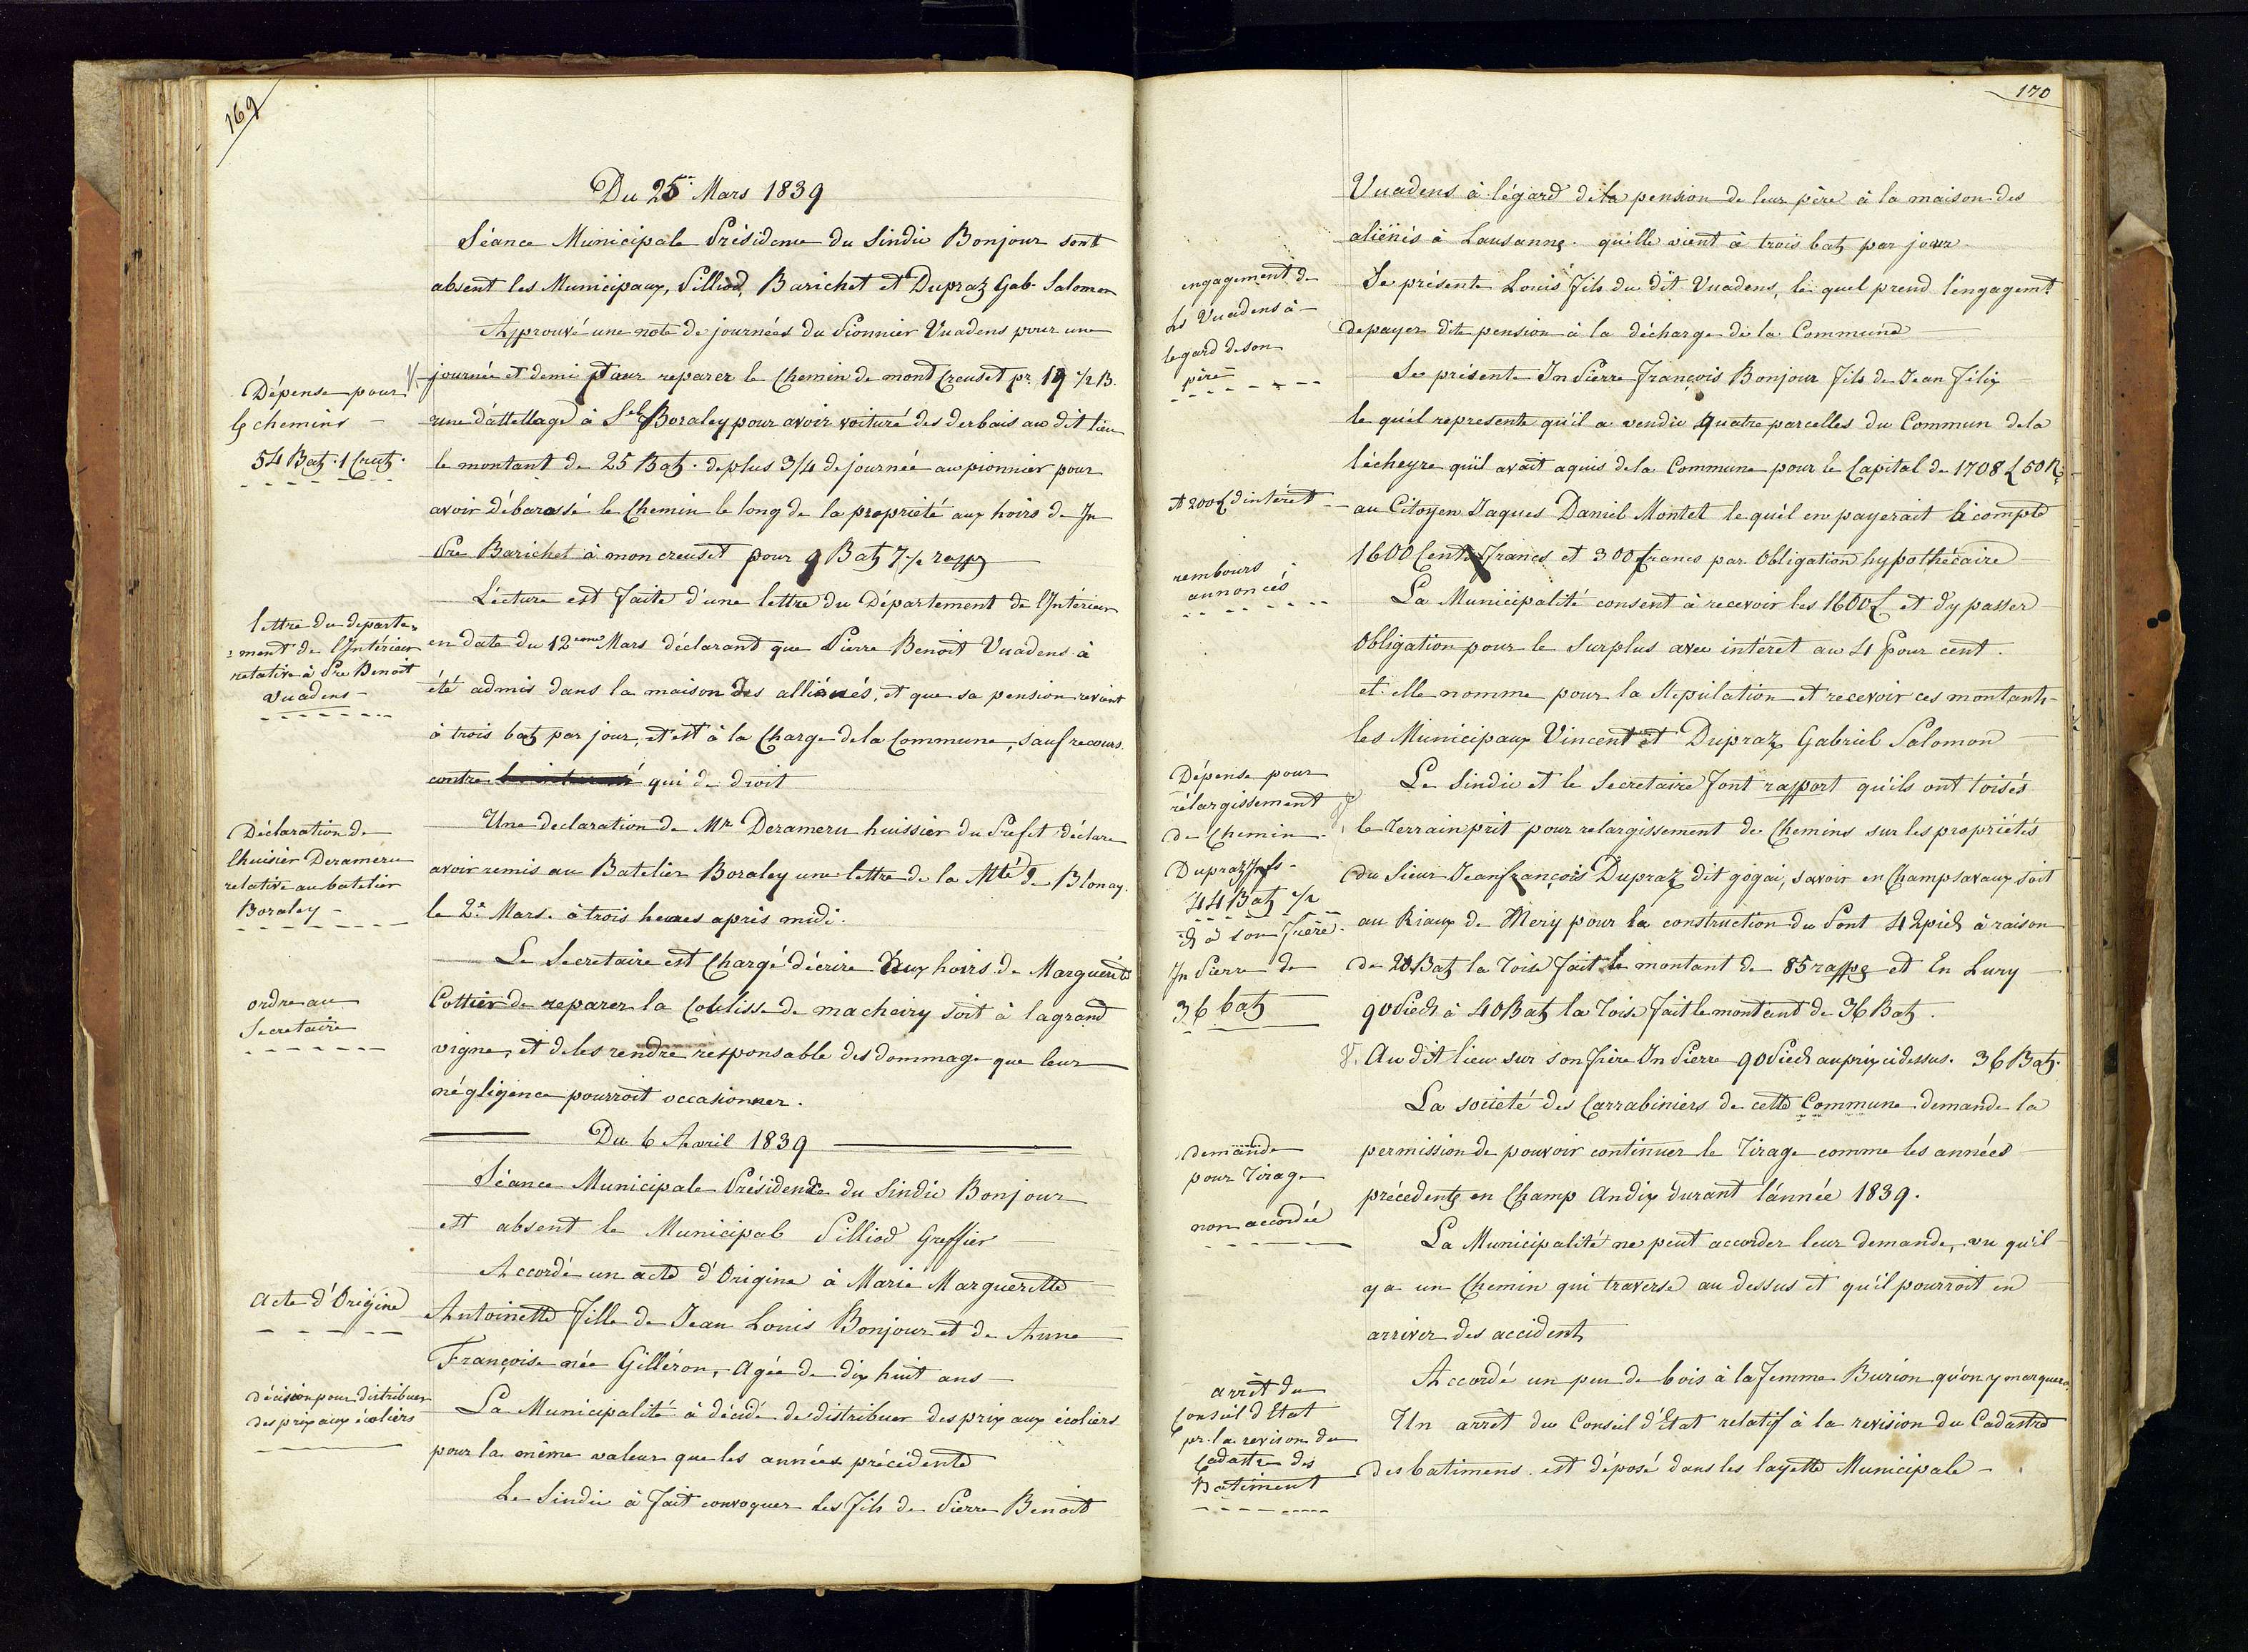 169
Du 25.e Mars 1839
Séance Municipale Présidence du Sindic Bonjour sont
absent les Municipaux, Pilliod, Barichet et Dupraz Gab. Salomon
Approuvé une note de journées du Pionnier Vuadens pour une
Dépense pour
les chemins
54 Batz. 1 Crutz.
journée et demi pour reparer le Chemin de mont Creuset pr. 19 1/2 B.
une d'attellage à Sel Boraley pour avoir voituré des derbais au dit lieu
le montant de 25 Batz. de plus 3/4 de journée au pionnier pour
avoir débarassé le Chemin le long de la propriété aux hoirs de Jn
Pre Barichet à moncreuset pour 9 Batz 7 1/2 rapp
lettre du departe=
=ment de l'Intérieur
relative à Pre Benoit
Vuadens
Lécture est faite d'une lettre du Département de l'Intérieur
en date du 12eme Mars déclarant que Pierre Benoit Vuadens à
été admis dans la maison des alliénés, et que sa pension revient
à trois batz par jour, et est à la Charge de la Commune, sauf recours.
contre qui de droit
Déclaration de
lhuisier Derameru
relative au batelier
Boraley
Une declaration de Mr Derameru huissier du Prefet déclare
avoir remis au Batelier Boraley une lettre de la Mté de Blonay.
le 2e Mars. à trois heures après midi.
ordre au
Secretaire
Le Secretaire est Chargé d'écrire aux hoirs de Marguérite
Cottier de reparer la Coulisse de macheiry soit à la grand
vigne, et de les rendre responsable des dommage que leur
négligence pourroit occasionner.
Du 6 Avril 1839
Séance Municipale Présidence du Sindic Bonjour
est absent le Municipal Pilliod Greffier
acte d'Origine
Accordé un acte d'Origine à Marie Marguerette
Antoinette fille de Jean Louis Bonjour et de Anne
Françoise née Gilléron, Agée de dix huit ans
décision pour distribuer
des prix aux écoliers
La Municipalité à décidé de distribuer des prix aux écoliers
pour la même valeur que les années précédente
Le Sindic à fait convoquer les fils de Pierre Benoit
170
Vuadens à légard de la pension de leur père à la maison des
aliénés à Lausanne. qu'elle vient à trois batz par jour
engagement de
Ls Vuadens à
legard de son
père
Se présente Louis fils du dit Vuadens, le quel prend l'engagemt
de payer dite pension à la décharge de la Commune
Se présente Jn Pierre François Bonjour fils de Jean Félix
le quél represente qu'il a vendu quatre parcelles du Commun de la
lécheyre qu'il avait aquis de la Commune pour le Capital de 1708 £ 50 R
et 200£ d'intéret
au Citoyen Jaques Daniel Montet le quél en payerait à compte
rembours
annoncés
1600 Cents francs et 300 francs par Obligation hypothécaire
La Municipalité consent à recevoir les 1600£ et d'y passer
Obligation pour le Surplus avec intéret au 4 pour cent.
et elle nomme pour la stipulation et recevoir ces montants
les Municipaux Vincent et Dupraz Gabriel Salomon
Dépense pour
rélargissement
de Chemin.
Dupraz Jn fs
44 Batz 1/2
et à son frère
Jn Pierre de
36 batz
Le Sindic et le Secretaire font rapport qu'ils ont toisés
le terrain prit pour relargissement de Chemins sur les propriétés
du Sieur Jean françois Dupraz dit gogai, savoir en Champsavaux soit
au Riaux de Mery pour la construction du Pont 42 pieds à raison
de 20 Batz la Toise fait le montant de 85 rapps et En Lury
90 Pieds à 40 Batz la Toise fait le montant de 36 Batz.
Au dit lieu sur son frère Jn Pierre 90 Pieds au prix cidessus. 36 Batz.
demande
pour Tirage
non accordée
La societé des Carrabiniers de cette Commune demande la
permission de pouvoir continuer le Tirage comme les années
précedents en Champ Andix durant l'année 1839.
La Municipalité ne peut accorder leur demande, vu qu'il
ya un Chemin qui traverse au dessus et qu'il pourroit en
arriver des accidents
Accordé un peu de bois à la femme Burion qu'on y marquera
arrêt du
Conseil d'Etat
pr. la revison du
Cadastre des
Batiment
Un arrêt du Conseil d'Etat relatif à la revision du Cadastre
des batimens est déposé dans les layette Municipale